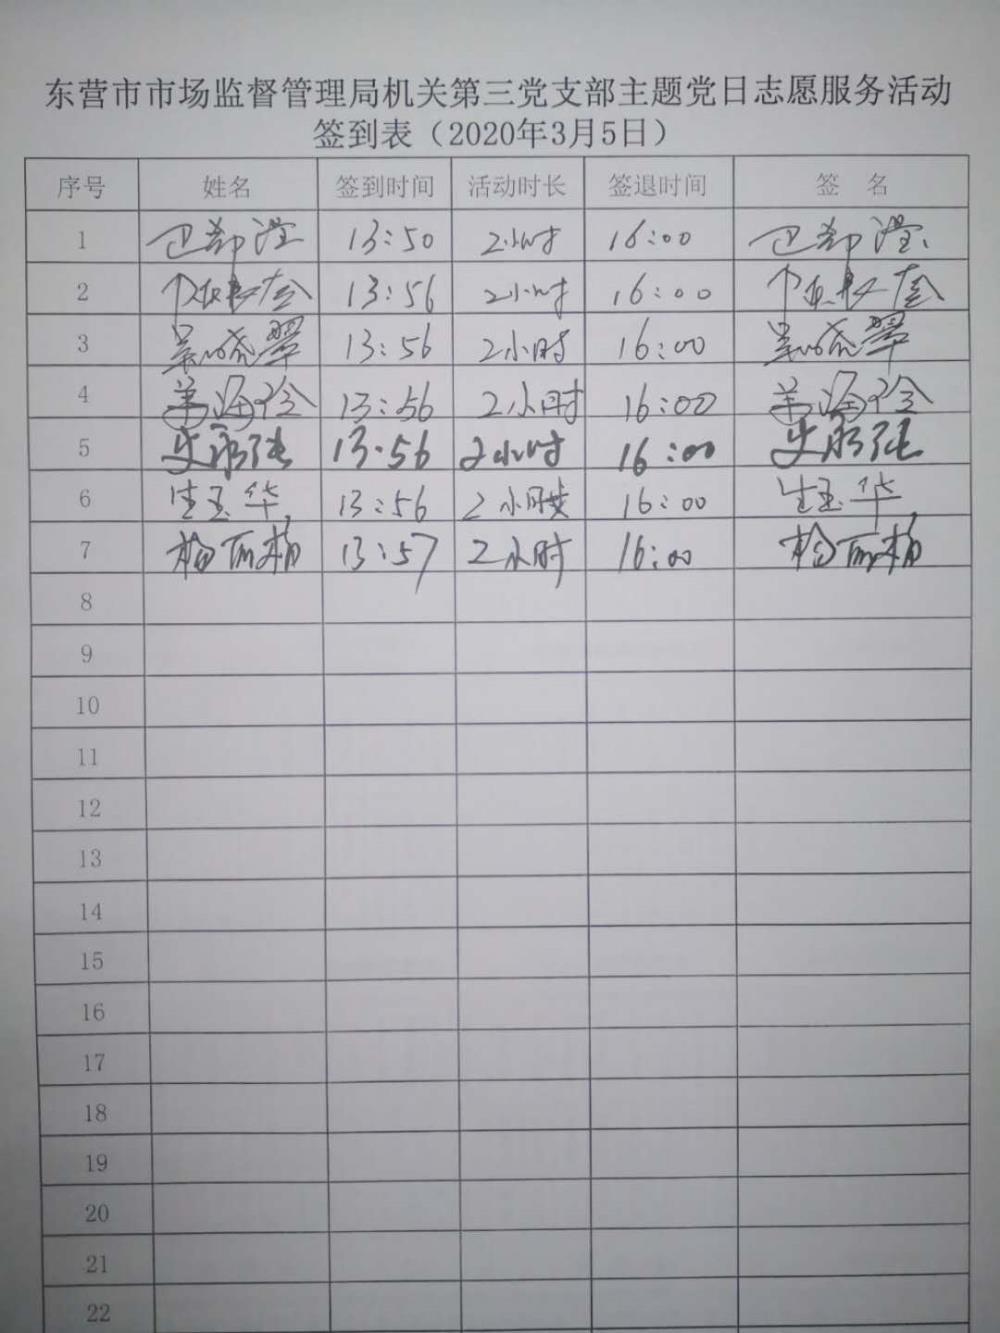 东营市市场监督管理局机关第三党支部主题党日志愿服务活动
签到表（2020年3月5日）
序号 姓名 签到时间 活动时长 签退时间 签 名
1 13:50 2小时 16:00
2 13:56 2小时 16:00
3 13:56 2小时 16:00
4 13:56 2小时 16:00
5 史永强 13:56 2小时 16:00 史永强
6 生玉华 13:56 2小时 16:00 生玉华
7 13:57 2小时 16:00
8
9
10
11
12
13
14
15
16
17
18
19
20
21
22